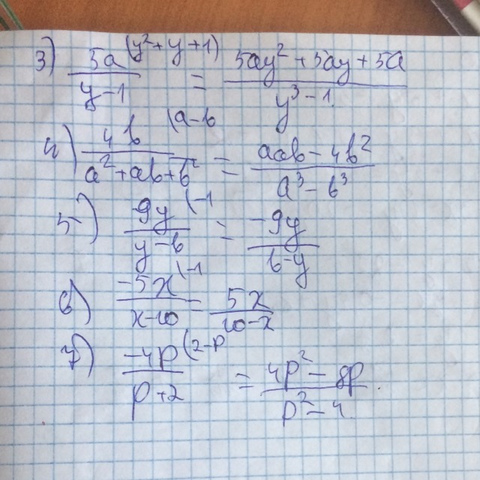 3) 5a (y²+y+1) / y-1 = 5ay²+5ay+5a / y³-1
4) 4b (a-b / a²+ab+b² = aab-4b² / a³-b³
5) 9y (-1 / y-b = -9y / b-y
6) -5x (-1 / x-10 = 5x / 10-x
7) -4p (2-p / p+2 = 4p²-8p / p²-4.